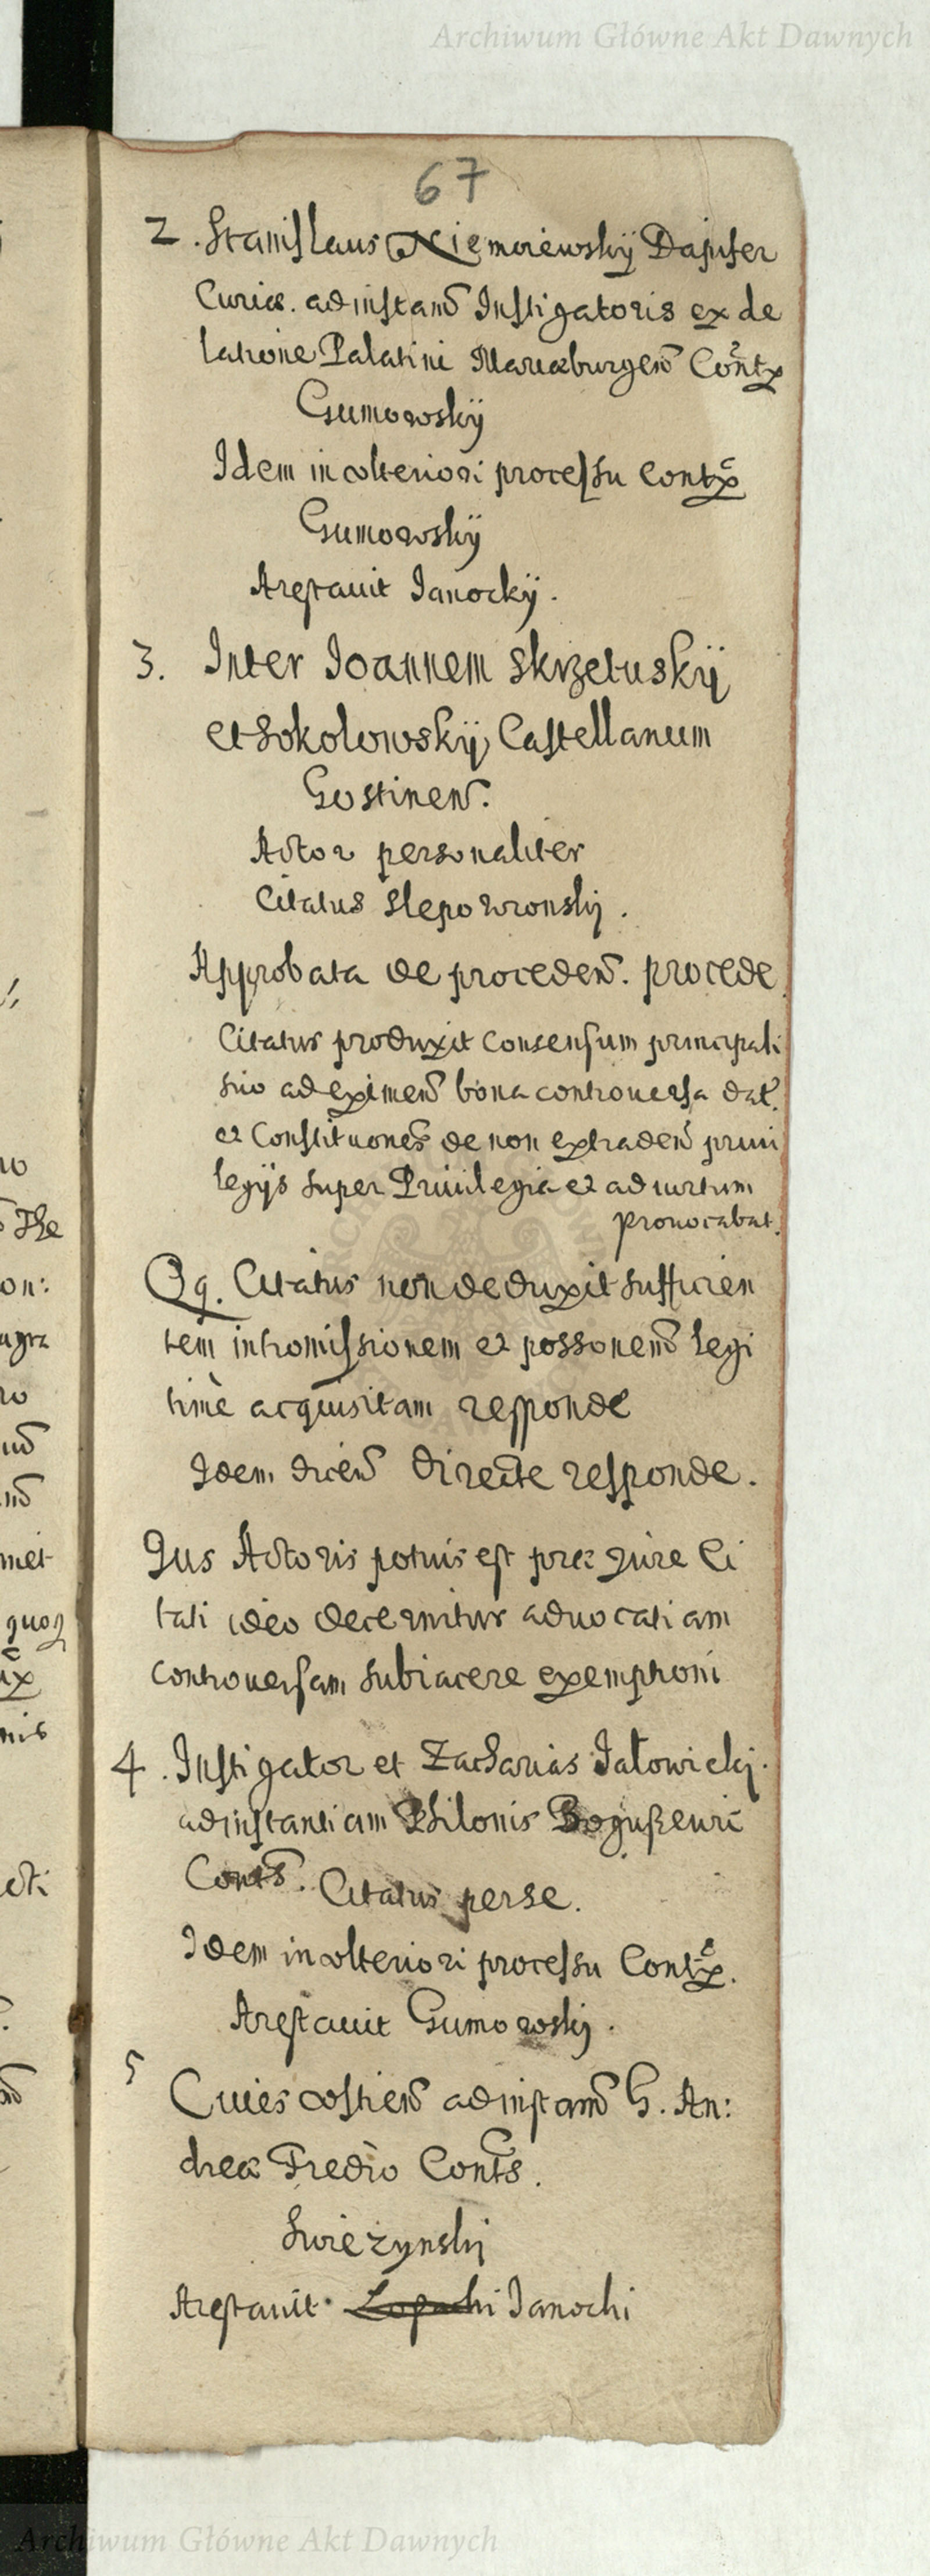 Archiwum Główne Akt Dawnych
67
2. Stanislaus Niemoiewskÿ Dapifer
Curiæ. ad instanō Instigatoris ex de
latione Palatini Mariæburgenō Contx
Gumowskÿ
Idem in olteriori processu Contx
Gumowskÿ
Arestauit Janockÿ.
3. Inter Joannem Skrzetuskÿ
et Sokolowskÿ Castellanum
Gostinen.
Actor personaliter
Citatus Slepowronskj.
Approbata de proceden. procede
Citatus produxit Consensum principali
suo ad eximenō bona controuersa dat.
et Constituones de non extradenō priui
legijs super Priuilegia et ad curtum
prouocabat.
Qq. Citatus non deduxit sufficien
tem intromissionem et possonemō legi
time acquisitam responde
Idem dicenō directe responde.
Jus Actoris potius est præ jure Ci
tati ideo decernitur aduocatiam
controuersam subiacere exemptioni
4. Instigator et Zacharias Jałowickj.
ad instantiam Philonis Bogußeuic
Conts. Citatus per se.
Idem in olteriori processu Contx.
Arestauit Gumowskj.
5 Ciues costienō ad instanō G. An:
dreæ Fredro Conts.
Swieżynskj
Arestauit Janocki
Archiwum Główne Akt Dawnych